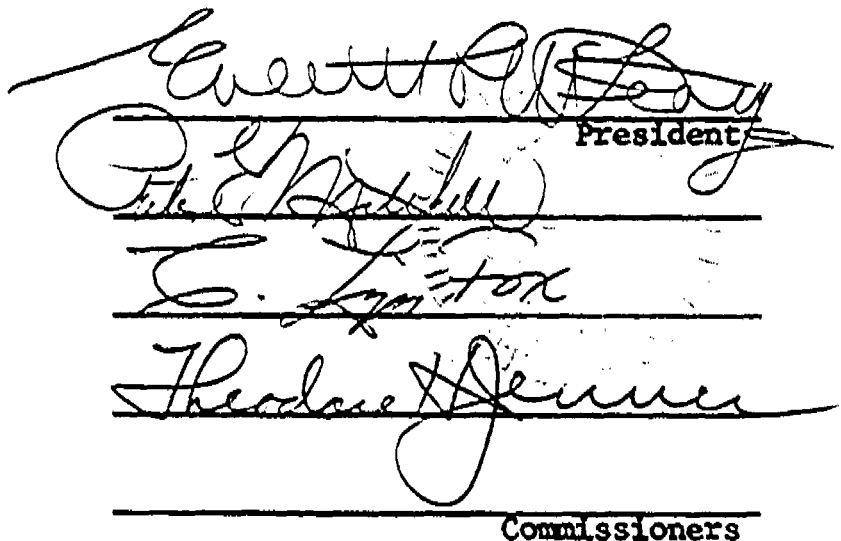 Everett C. McLeary
President
Pete E. Mitchell
E. Lynn Fox
Theodore H Jenner
Commissioners